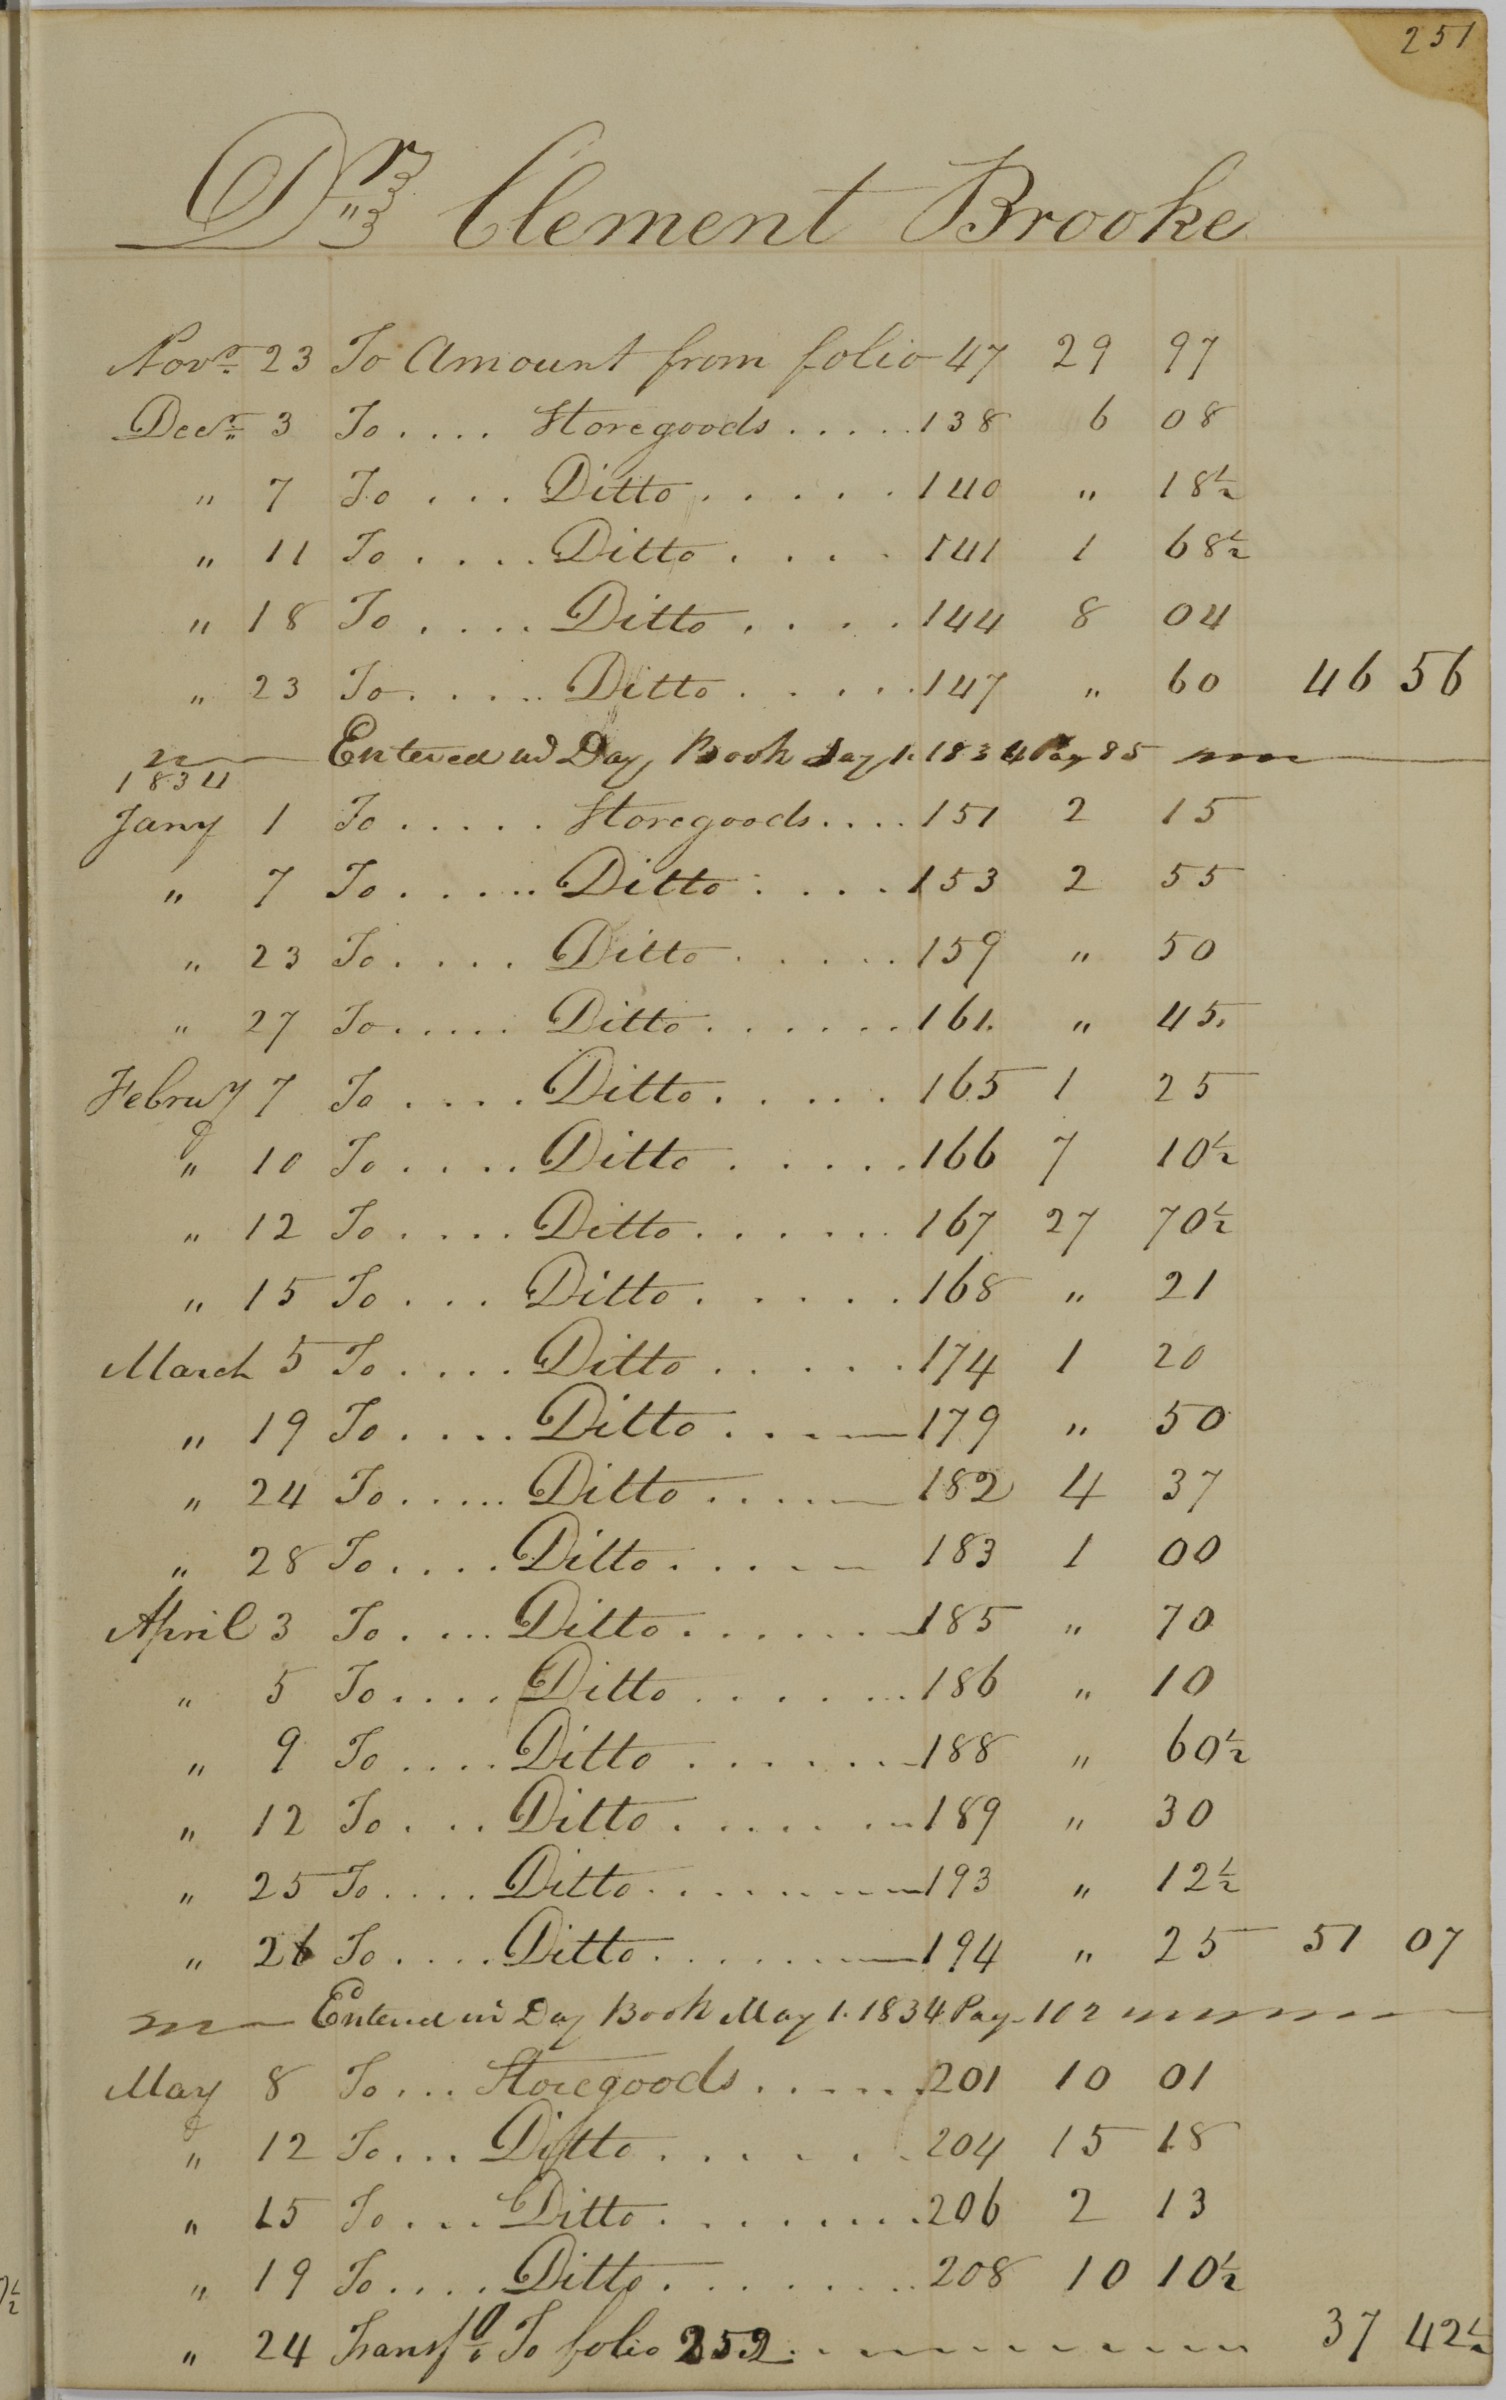 251
Dr Clement Brooke
Novr 23 To Amount from folio 47 29 97
Decr 3 To .... Storegoods ..... 138 6 08
" 7 To ... Ditto ..... 140 " 18½
" 11 To .... Ditto .... 141 1 68½
" 18 To .... Ditto .... 144 8 04
" 23 To ..... Ditto ..... 147 " 60 46 56
Entered in Day Book Jay 1. 1834 Pay 85
1834
Jany 1 To ..... Storegoods .... 151 2 15
" 7 To ..... Ditto .... 153 2 55
" 23 To .... Ditto ..... 159 " 50
" 27 To ..... Ditto ...... 161. " 45.
Februy 7 To .... Ditto ..... 165 1 25
" 10 To .... Ditto ..... 166 7 10½
" 12 To .... Ditto ...... 167 27 70½
" 15 To ... Ditto ..... 168 " 21
March 5 To .... Ditto ..... 174 1 20
" 19 To .... Ditto .... 179 " 50
" 24 To ..... Ditto .... 182 4 37
" 28 To .... Ditto ..... 183 1 00
April 3 To .... Ditto ...... 185 " 70
" 5 To .... Ditto ...... 186 " 10
" 9 To .... Ditto ...... 188 " 60½
" 12 To ... Ditto ...... 189 " 30
" 25 To .... Ditto ....... 193 " 12½
" 26 To .... Ditto ...... 194 " 25 51 07
Entered in Day Book May 1. 1834 Pay 102
May 8 To ... Storegoods ..... 201 10 01
" 12 To ... Ditto ...... 204 15 18
" 15 To ... Ditto ....... 206 2 13
" 19 To .... Ditto ....... 208 10 10½
" 24 Transfd To folio 252 37 42½